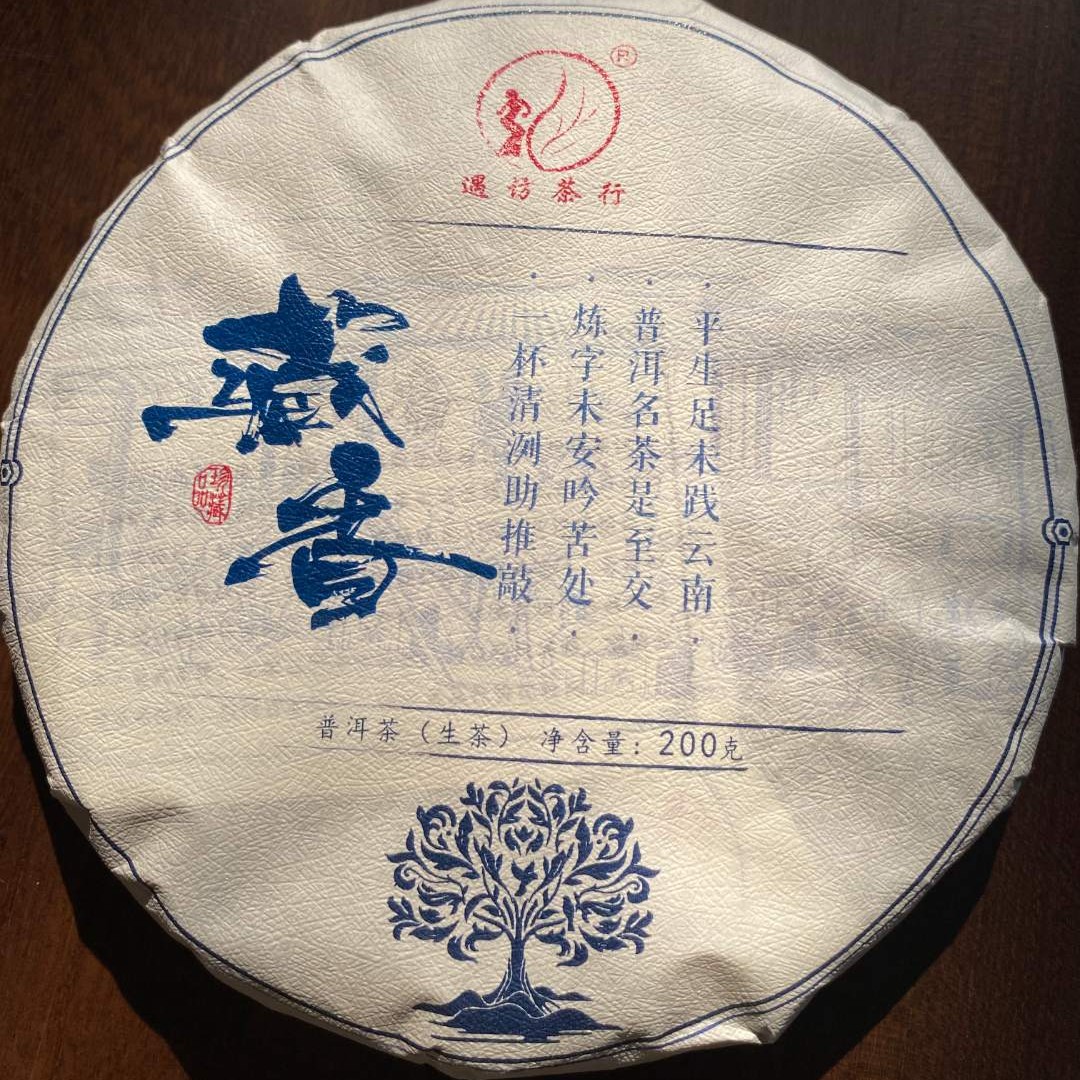 遇访茶行
藏香
珍藏品
平生足未践云南
普洱名茶是至交
炼字未安吟苦处
一杯清洌助推敲
普洱茶（生茶） 净含量：200克